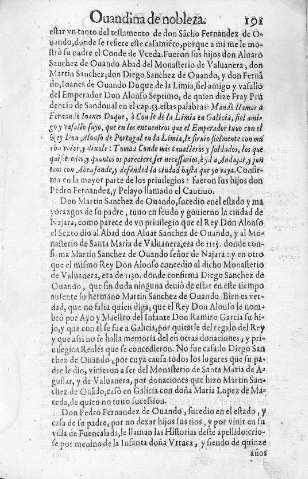 Ouandina de nobleza. 191
estar vn tanto del testamento de don Sācho Fernandez de O-
uando, donde se refiere este casamiēto, porque a mi me le mo-
strò su padre el Conde de Vzeda. Fueron sus hijos don Aluaro
Sanchez de Ouando Abad del Monasterio de Valuanera, don
Martin Sanchez, don Diego Sanchez de Ouando, y don Fernā-
do, Ioanes de Ouando Duque de la Limia, fiel amigo y vasallo
del Emperador Don Alonso Septimo, de quien dize Fray Pru-
dencio de Sandoual en el cap. 53. estas palabras: Mandò llamar a
Fernando Ioanes Duque, ò Conde de la Limia en Galicia, fiel ami-
go y vasallo suyo, que en los encuentros que el Emperador tuuo con el
Rey Don Alonso de Portugal en la Limia, le siruio fielmente con mu
cho valor, y dixole: Tomad Conde mis caualleros y soldados, los que
quisieredes, y quantos os pareciere ser necessarios, è yd a Badajoz, y jun
tos con defended la ciudad hasta que yo vaya. Confir-
ma en la mayor parte de los priuilegios: Fueron sus hijos don
Pedro Fernandez, y Pelayo llamado el Cautiuo.
Don Martin Sanchez de Ouando, sucedio en el estado y ma
yorazgos de su padre, tuuo en feudo y gouierno la ciudad de
Najara, como parece de vn priuilegio que el Rey Don Alonso
el Sexto dio al Abad don Aluar Sanchez de Ouando, y al Mo-
nasterio de Santa Maria de Valuanera, era de 1115. donde con-
firma Martin Sanchez de Ouando señor de Najara: y en otro
que el mismo Rey Don Alonso concedio al dicho Monasterio
de Valuanera, era de 1130. donde confirma Diego Sanchez de
Ouando, que sin duda ninguna deuiò de estar en este tiempo
ausente su hermano Martin Sanchez de Ouando. Bien es ver-
dad, que no falta quien diga, que el Rey Don Alonso le nom-
brò por Ayo y Maestro del Infante Don Ramiro Garcia su hi-
jo, y que con el se fue a Galicia, por quitarle del regalo del Rey
y que assi no se halla memoria del en otras donaciones, y pri-
uilegios Reales que se concedieron. No fue casado Diego San
chez de Ouando, por cuya causa todos los lugares que su pa-
dre le dio, vinieron a ser del Monasterio de Santa Maria de A-
guilar, y de Valuanera, por donaciones que hizo Martin San-
chez de Ouādo, casò en Galicia con doña Maria Lopez de Ma-
zeda, de quien no tuuo sucession.
Don Pedro Fernandez de Ouando, sucedio en el estado, y
casa de su padre, por no dexar hijos sus tios, y por viuir en su
villa de Fuencalada, le llaman las Historias deste apellido: crio-
se por menino de la Infanta doña Vrraca, y siendo de quinze
años